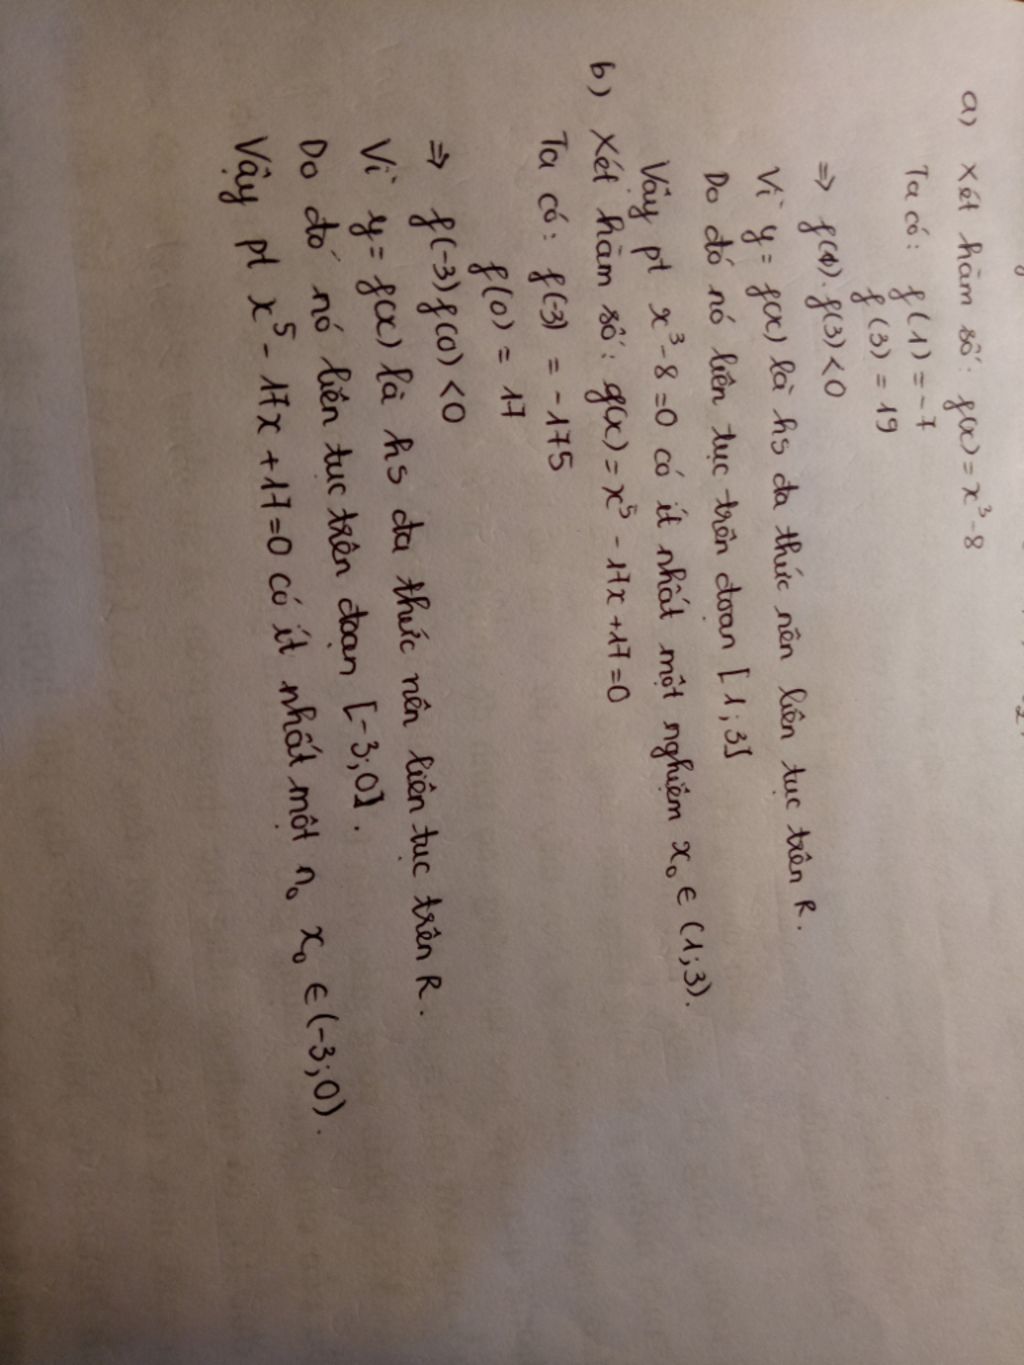 a) Xét hàm số: f(x) = x³ - 8
Ta có: f(1) = -7
f(3) = 19
⇒ f(1). f(3) < 0
Vì y = f(x) là hs đa thức nên liên tục trên R.
Do đó nó liên tục trên đoạn [1; 3]
Vậy pt x³ - 8 = 0 có ít nhất một nghiệm x₀ ∈ (1; 3).
b) Xét hàm số: g(x) = x⁵ - 17x + 17 = 0
Ta có: f(-3) = -175
f(0) = 17
⇒ f(-3) f(0) < 0
Vì y = f(x) là hs đa thức nên liên tục trên R.
Do đó nó liên tục trên đoạn [-3; 0].
Vậy pt x⁵ - 17x + 17 = 0 có ít nhất một n₀ x₀ ∈ (-3; 0).